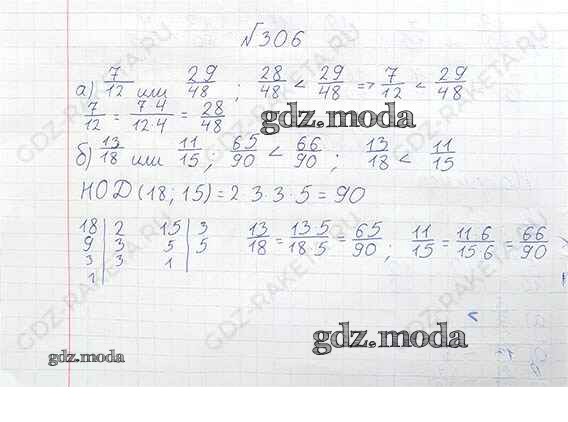 №306
а) 7/12 или 29/48 ; 28/48 < 29/48 => 7/12 < 29/48
7/12 = 7·4/12·4 = 28/48
gdz.moda
б) 13/18 или 11/15 ; 65/90 < 66/90 ; 13/18 < 11/15
НОД (18; 15) = 2·3·3·5 = 90
18 | 2 15 | 3 13/18 = 13·5/18·5 = 65/90 ; 11/15 = 11·6/15·6 = 66/90
9 | 3 5 | 5
3 | 3 1 |
1 |
<
gdz.moda
gdz.moda
GDZ-RAKETA.RU